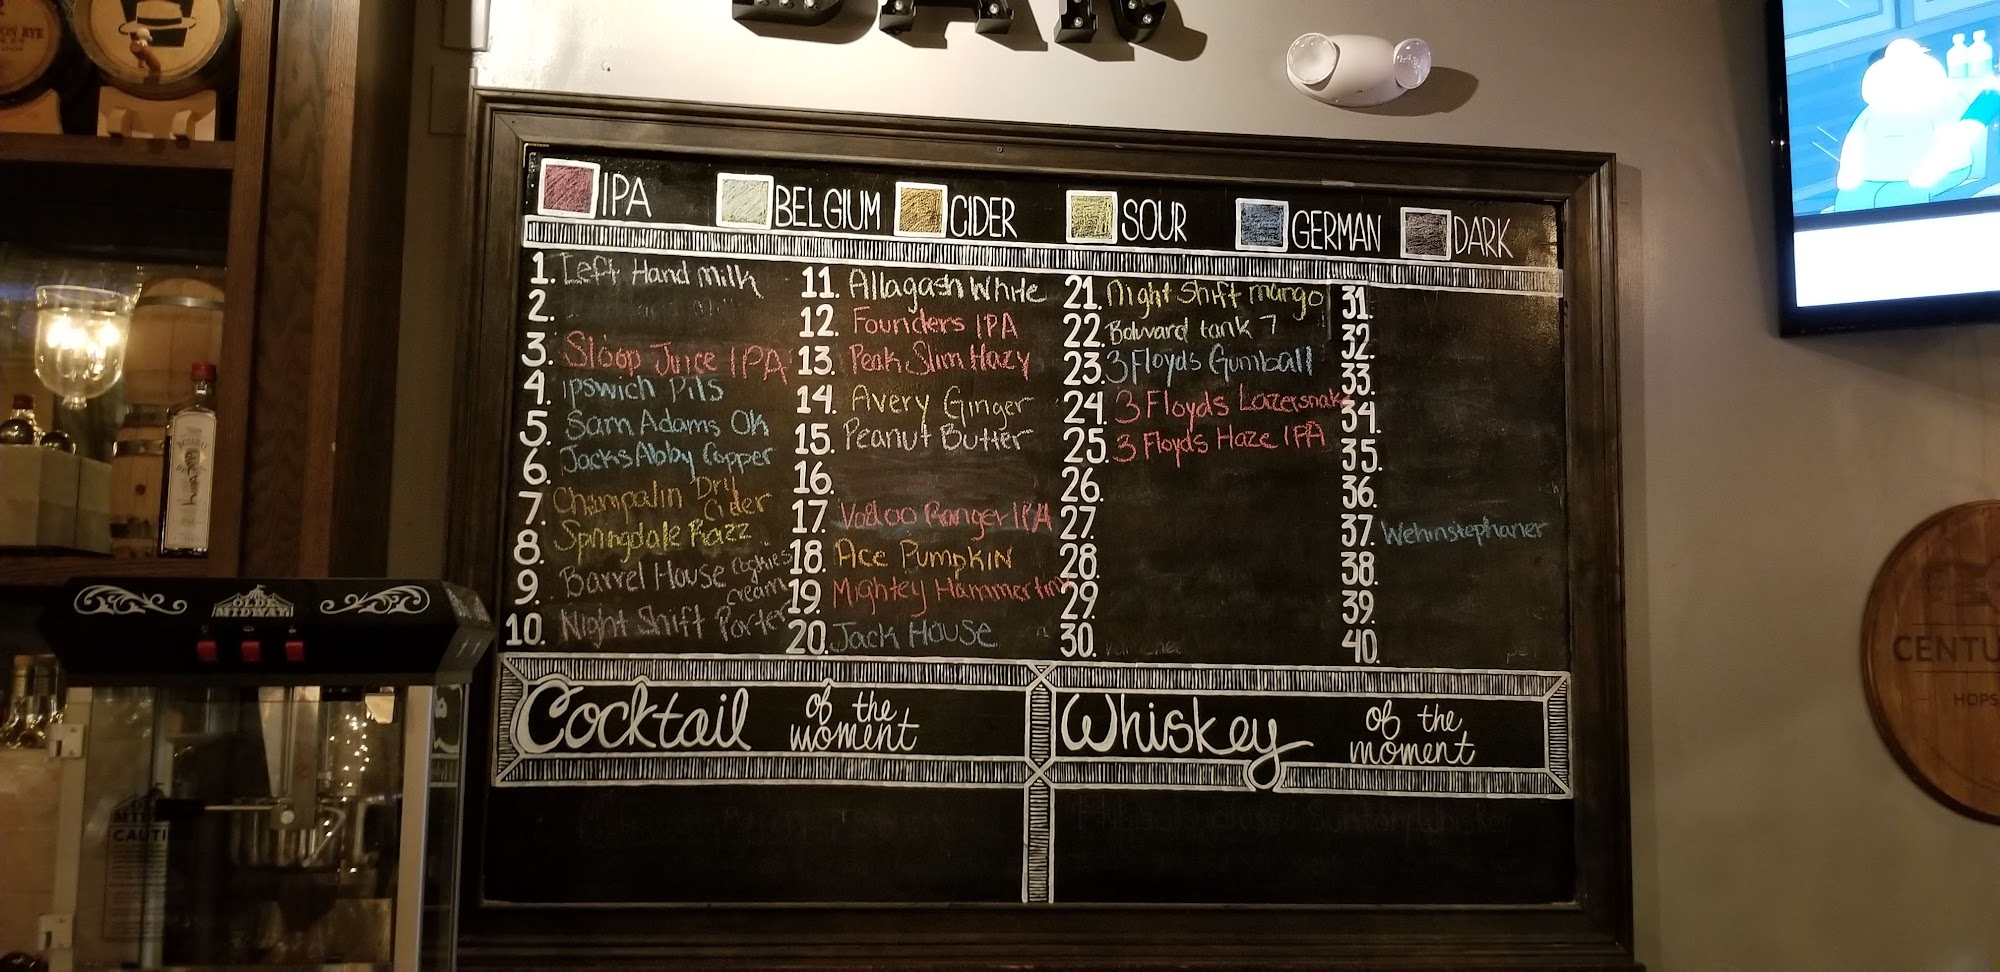 BAR
IPA
BELGIUM
CIDER
SOUR
GERMAN
DARK
1. Left Hand Milk
2.
3. Sloop Juice IPA
4. Ipswich Pils
5. Sam Adams Ok
6. Jacks Abby Copper
7. Champalin Dry Cider
8. Springdale Razz
9. Barrel House cream
10. Night Shift Porter
11. Allagash White
12. Founders IPA
13. Peak Slim Hazy
14. Avery Ginger
15. Peanut Butter
16.
17. Vodoo Ranger IPA
18. Ace Pumpkin
19. Mightey Hammer
20. Jack House
21. Night Shift mango
22. tank 7
23. 3 Floyds Gumball
24. 3 Floyds Lazersnake
25. 3 Floyds Haze IPA
26.
27.
28.
29.
30.
31.
32.
33.
34.
35.
36.
37. Wehinstephaner
38.
39.
40.
Cocktail of the moment
Whiskey of the moment
OLDE
MIDWAY
CAUTI
CENTU
HOPS